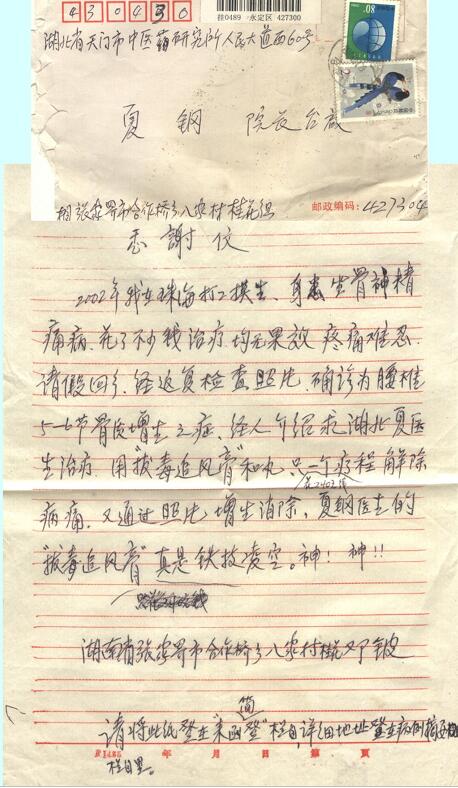 430430
挂0489 永定区 427300
湖北省天门市中医药研究所人民大道西60号
80
夏 钢 院长台启
湘张家界市合作桥乡八家村桂花组
邮政编码：427304
感謝仪
2002年我在珠海打工摸生、身患坐骨神精
痛病、花了不少钱治疗、均无果效、疼痛难忍、
请假回乡、经返复检查照片、确诊为腰椎
5-6节骨质增生之症、经人介绍求湖北夏医
生治疗、用"拔毒追风膏"和丸、只一个疗程解除
病痛、又通过照片增生消除、夏钢医生的
"拔毒追风膏"真是铁拔凌空。神！神！！
湖南省张家界市合作桥乡八家村桂花 邓铍
请将此纸登在"来函简登"栏目,详细地址登在病例摘要
栏目里。
年 月 日 第 页